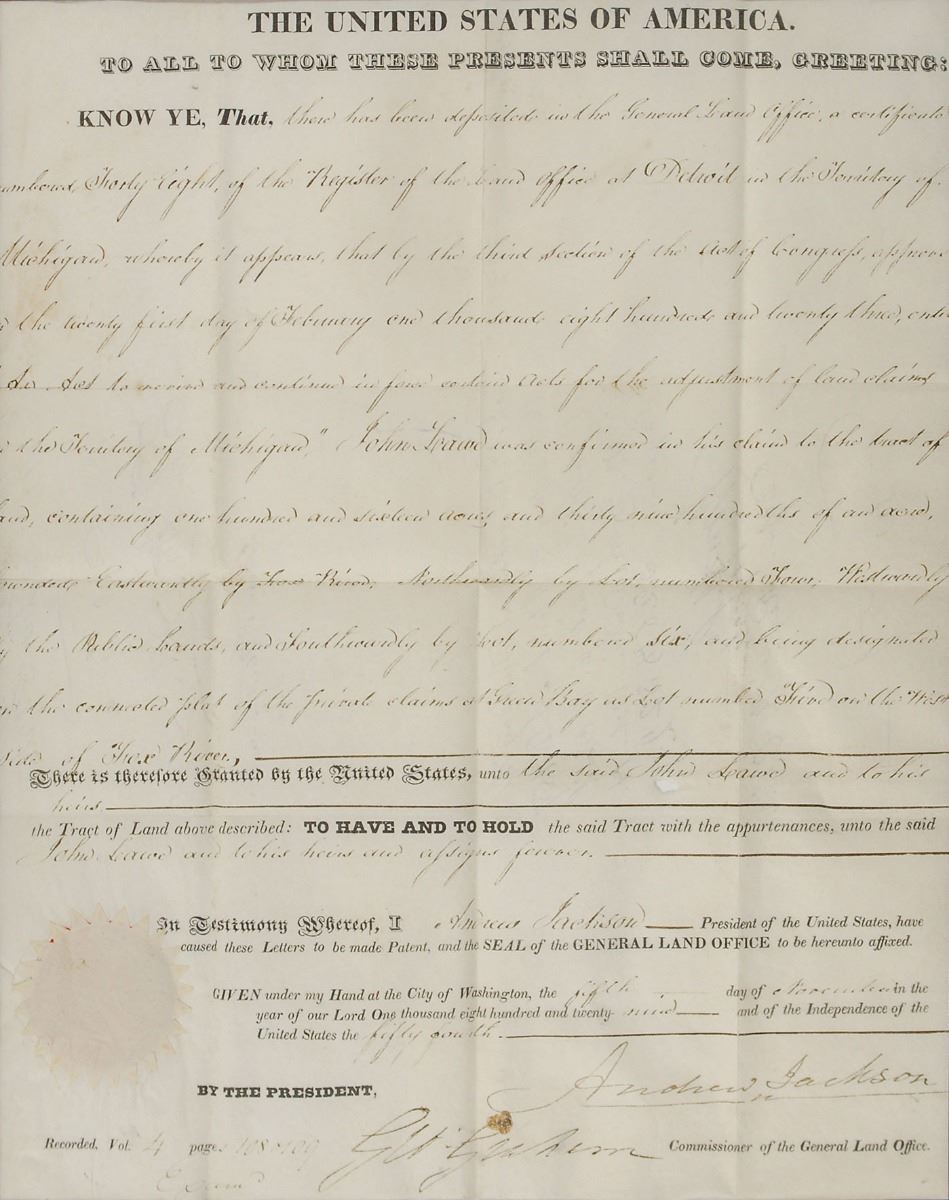 THE UNITED STATES OF AMERICA.
TO ALL TO WHOM THESE PRESENTS SHALL COME, GREETING:
KNOW YE, That, there has been deposited in the General Land Office, a certificate
umbered Forty Eight, of the Register of the Land Office at Detroit in the Territory of
Michigan, whereby it appears, that by the third section of the Act of Congress, approve
the twenty first day of February one thousand eight hundred and twenty three, enti
An Act to revive and continue in force certain acts for the adjustment of land claims
the Territory of Michigan," John Lawe was confirmed in his claim to the tract of
and, containing one hundred and sixteen acres, and thirty nine hundredths of an acre,
ounded Eastwardly by Fox River, Northwardly by Lot, numbered Four, Westwardly
y the Public Lands, and Southwardly by Lot, numbered Six, and being designated
on the connected plat of the private claims at Green Bay as Lot number Five on the West
side of Fox River,
There is therefore Granted by the United States, unto the said John Lawe and to his
heirs
the Tract of Land above described: TO HAVE AND TO HOLD the said Tract with the appurtenances, unto the said
John Lawe and to his heirs and assigns forever.
In Testimony Whereof, I Andrew Jackson President of the United States, have
caused these Letters to be made Patent, and the SEAL of the GENERAL LAND OFFICE to be hereunto affixed.
GIVEN under my Hand at the City of Washington, the fifth day of November in the
year of our Lord One thousand eight hundred and twenty- nine and of the Independence of the
United States the fifty fourth.
BY THE PRESIDENT, Andrew Jackson
Recorded, Vol. 4 page 108 Graham Commissioner of the General Land Office.